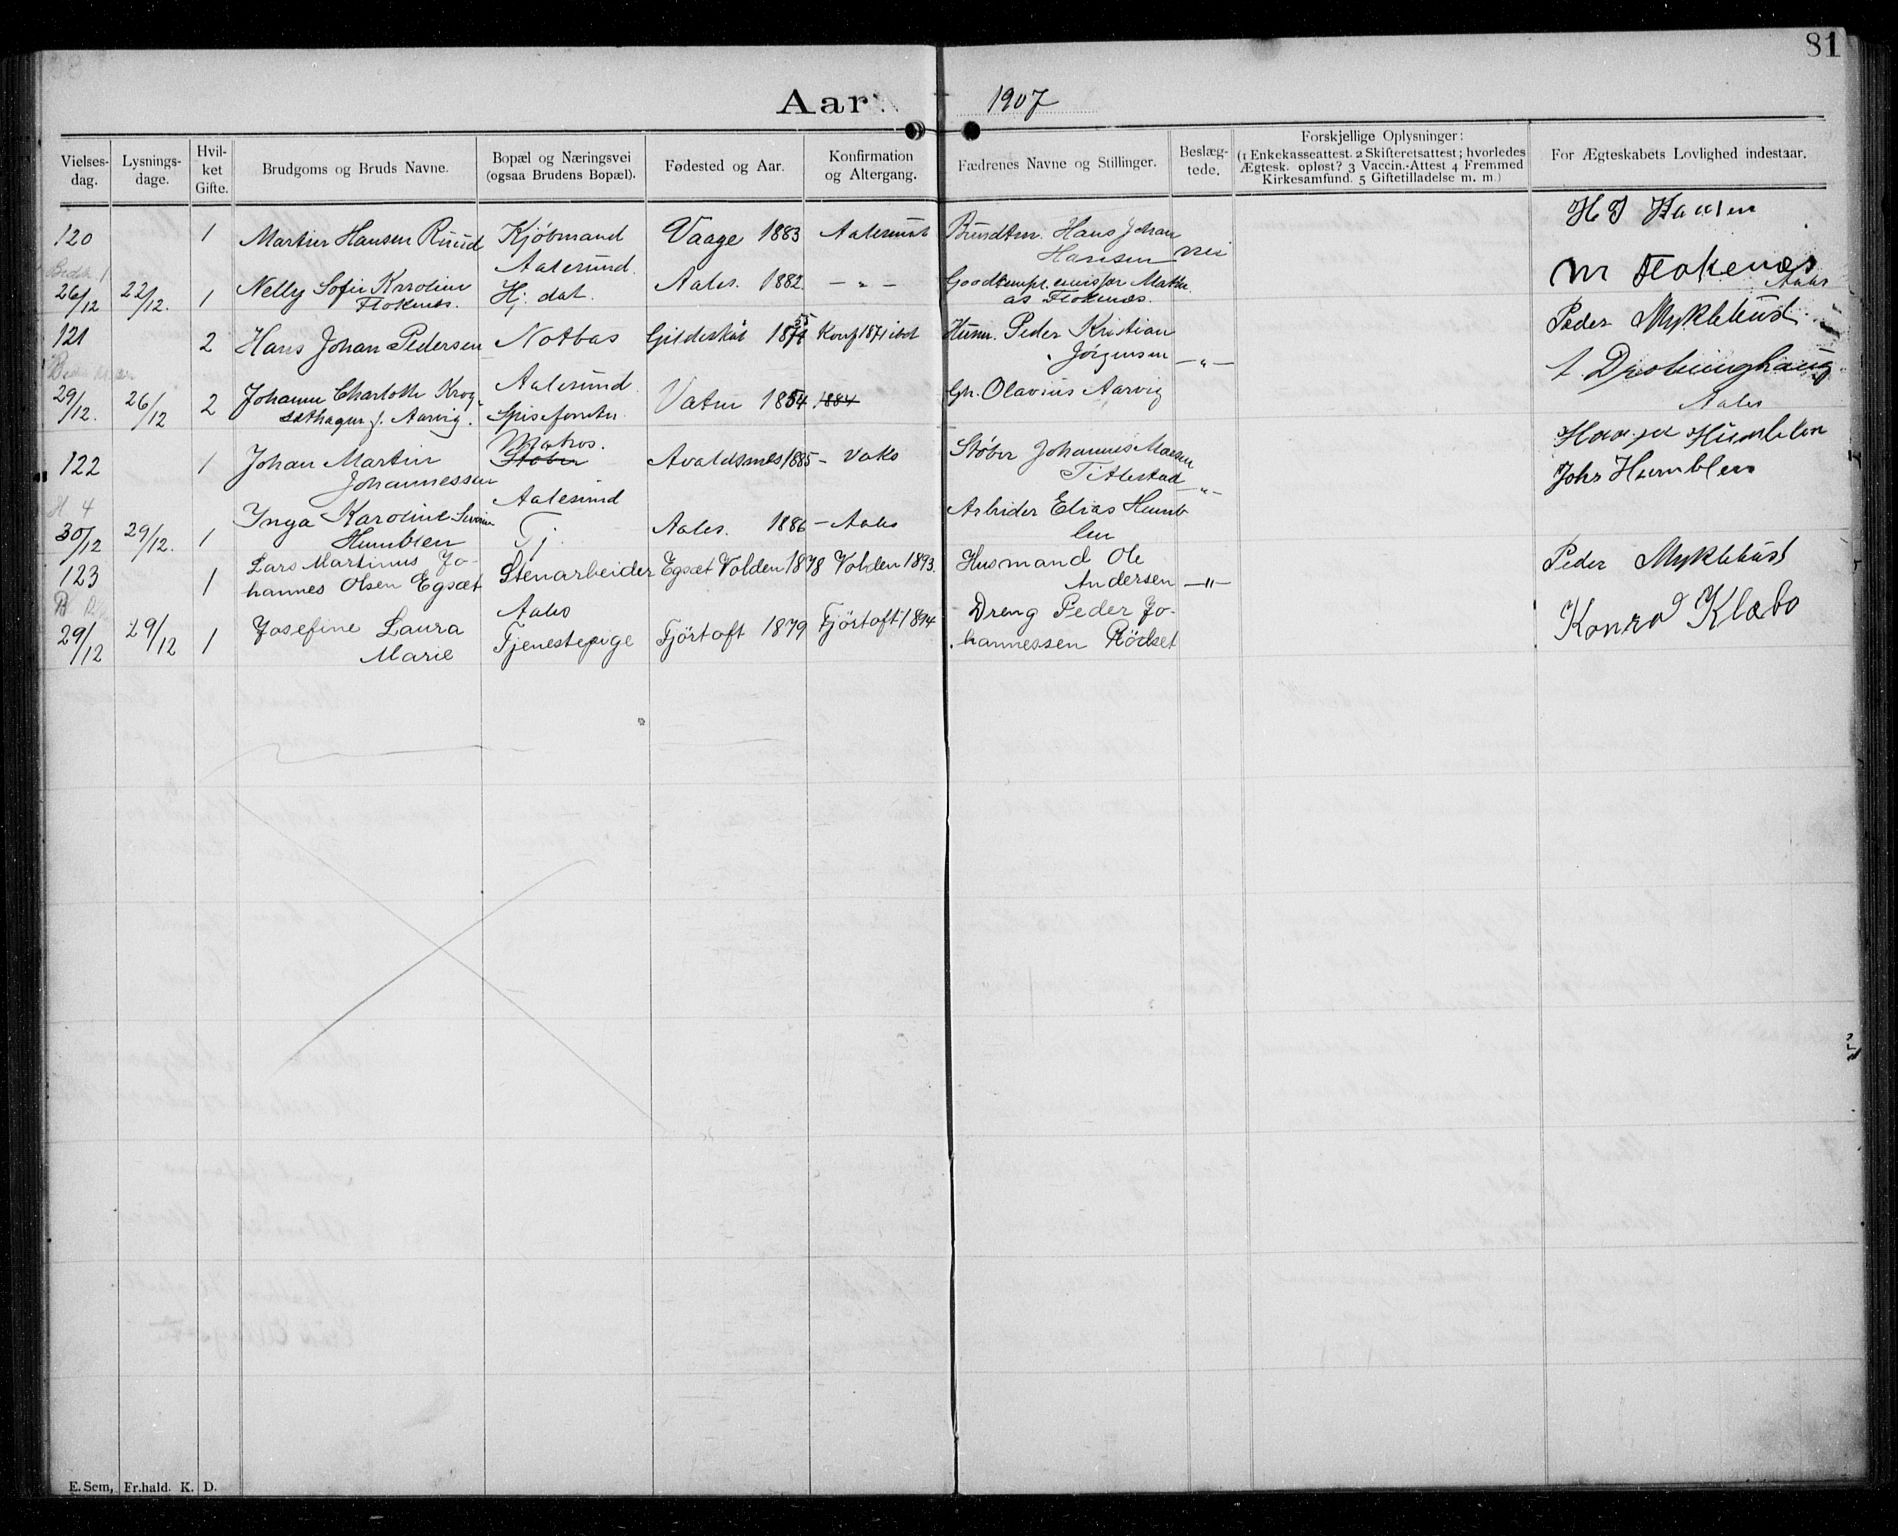 81
Aar 1907
Vielses-dag. Lysnings-dage. Hvil-ket Gifte. Brudgoms og Bruds Navne. Bopæl og Næringsvei (ogsaa Brudens Bopæl). Fødested og Aar. Konfirmation og Altergang. Fædrenes Navne og Stillinger. Beslæg-tede. Forskjellige Oplysninger: (1 Enkekasseattest. 2 Skifteretsattest; hvorledes Ægtesk. opløst? 3 Vaccin.-Attest 4 Fremmed Kirkesamfund. 5 Giftetilladelse m. m.) For Ægteskabets Lovlighed indestaar.
120 1 Martin Hansen Ruud Kjøbmand Vaage 1883 Aalesund Bundtm. Hans Johan H J Hansen
Aalesund. Hansen nei
26/12 22/12. 1 Nelly Sofie Karoline Hj. dat. Aales. 1882 — " — Goodtempl. emissær M Flokenæs
Flokenes. as Flokenæs. Aales
121 2 Hans Johan Pedersen Notbas Gildeskål 55 Konf 1871 ibdt Husm. Peder Kristian Peder Myklebust
Jørgensen —"—
29/12. 26/12 2 Johanne Charlotte Krog- Aalesund Vatne 1854 1884 Gbr. Olavius Aarvig
sæthagen f. Aarvig. Spiseforretn. Aales
122 1 Johan Martin Matros. Støber Avaldsnes 1885 — Vaks Støber Johannes Humblen
Johannessen Titlestad —"— Johs Humblen
H 4
30/12 29/12. 1 Inga Karoline Severine Aalesund Aales. 1886 — Aales Arbeider Elias Humb
Humblen Tj. len
123 1 Lars Martinus Jo- Stenarbeider Egsæt Volden 1878 Volden 1893. Husmand Ole Peder Myklebust
hannes Olsen Egsæt Andersen —"—
B
29/12 29/12 1 Josefine Laura Aales Fjörtoft 1879 Fjörtoft 1894 Dreng Peder Jo- Konrad Klæbo
Marie Tjenestepige hannessen Rödset
E. Sem, Fr.hald. K. D.